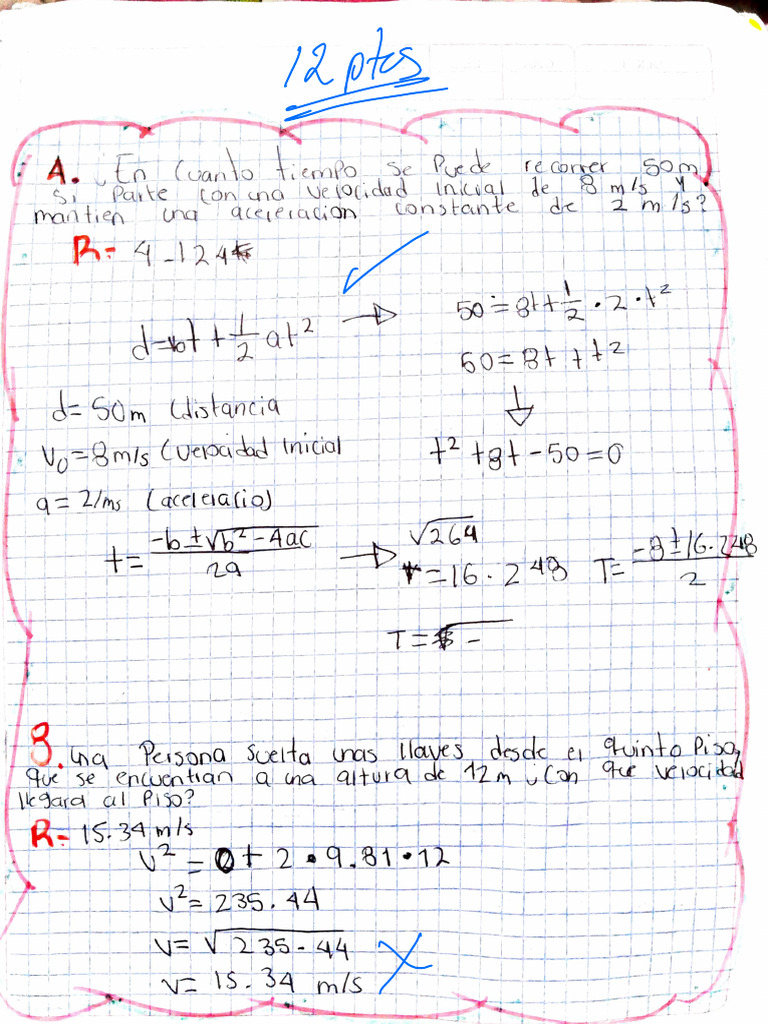 12 ptos
A. En cuanto tiempo se puede recorrer 50m
si parte con una velocidad inicial de 8 m/s y
mantien una aceleracion constante de 2 m/s?
R= 4-124
d=vot + 1/2 at² → 50=8t+1/2·2·t²
50=8t+t²
↓
d=50m (distancia
t²+8t-50=0
v₀=8m/s (velocidad inicial
a=2/ms (aceleracio)
t= -b±√b²-4ac / 2a → √264
t=16.248 T= -8±16.248 / 2
T=
B. una Persona suelta unas llaves desde el quinto Piso,
que se encuentran a una altura de 12m. Con que velocidad
llegara al Piso?
R= 15.34 m/s
v² = 0+ 2·9.81·12
v²=235.44
v= √235.44
v= 15.34 m/s